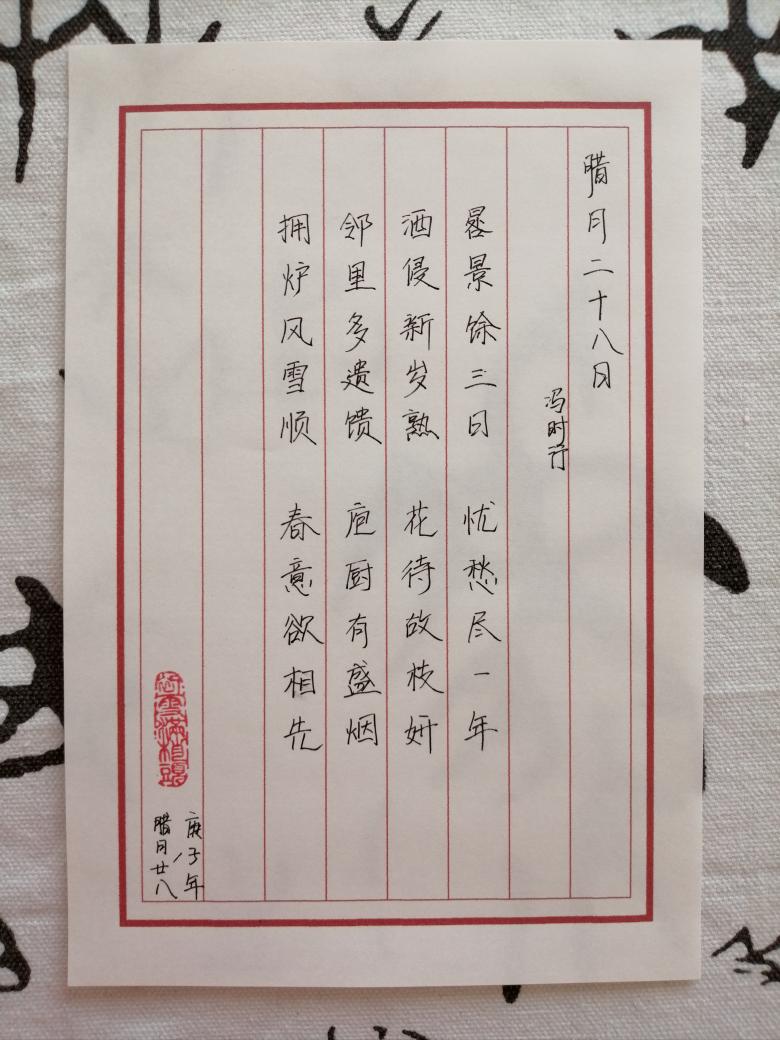 腊月二十八日
冯时行
晷景馀三日 忧愁尽一年
酒侵新岁熟 花待故枝妍
邻里多遗馈 庖厨有盛烟
拥炉风雪顺 春意欲相先
庚子年
腊月廿八